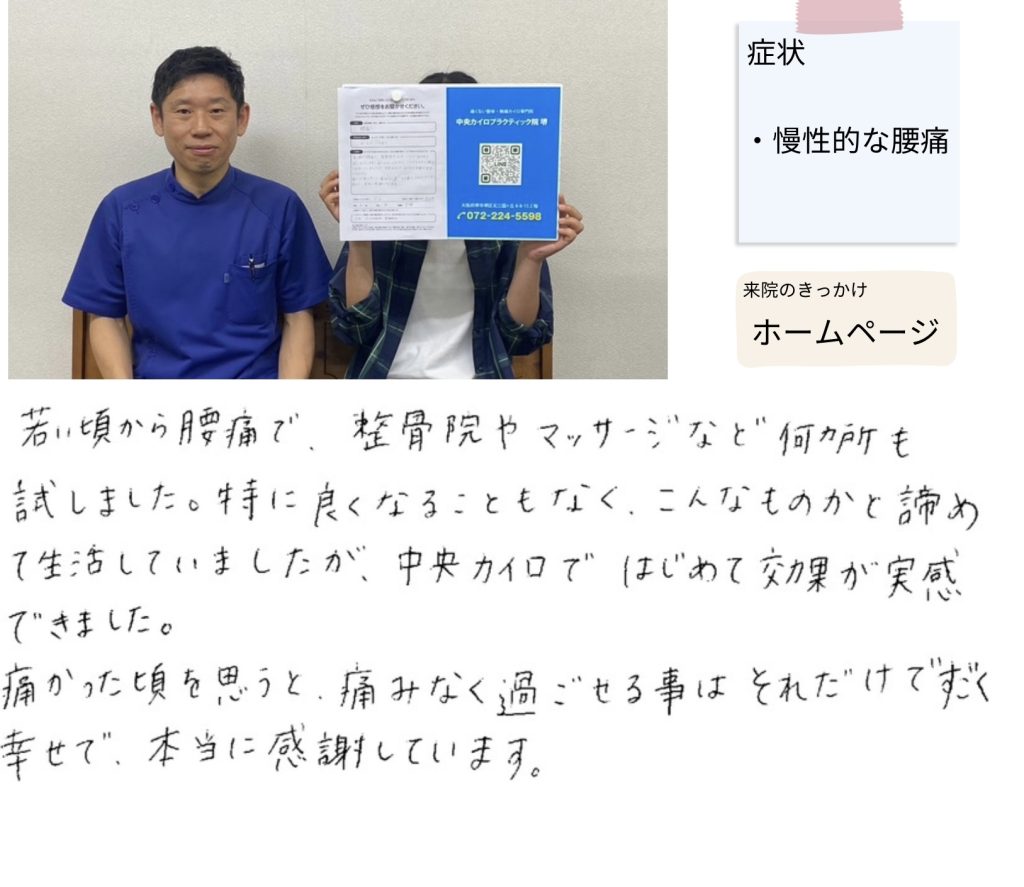 ぜひ感想をお聞かせください。
痛くない整体・無痛カイロ専門院
中央カイロプラクティック院 堺
LINE
072-224-5598
症状
・慢性的な腰痛
来院のきっかけ
ホームページ
若い頃から腰痛で、整骨院やマッサージなど何カ所も
試しました。特に良くなることもなく、こんなものかと諦め
て生活していましたが、中央カイロではじめて効果が実感
できました。
痛かった頃を思うと、痛みなく過ごせる事はそれだけですごく
幸せで、本当に感謝しています。